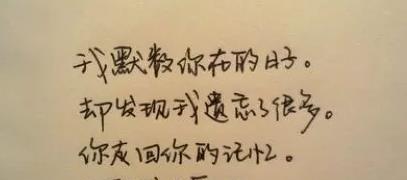 我默数你在的日子。
却发现我遗忘了很多。
你友回你的记忆。